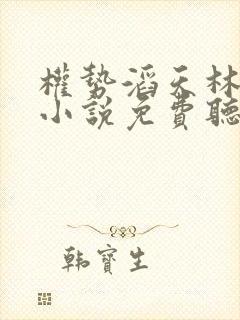 權勢滔天林
小說免費聽
韩寶生